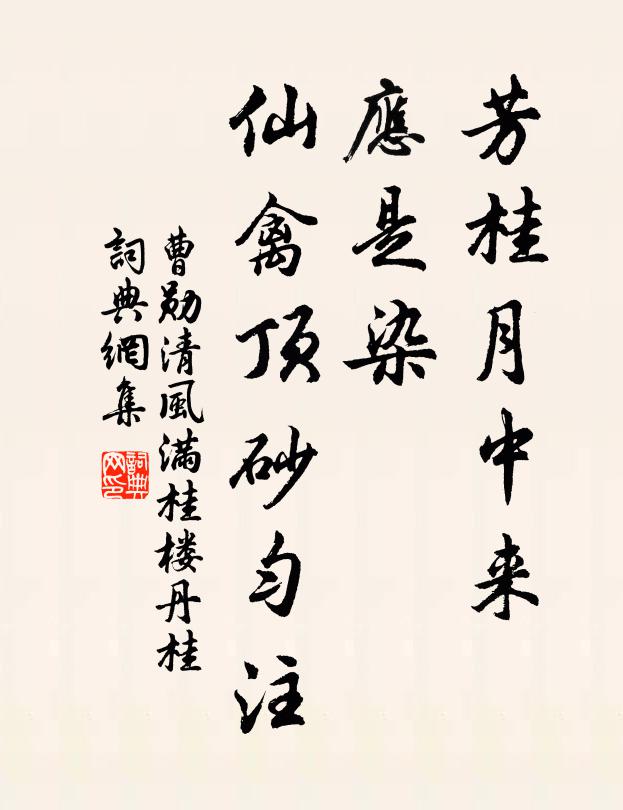 芳桂月中来
應是染
仙禽顶砂匀注
曹勋清風满桂楼丹桂
詞典網集
詞典
网印